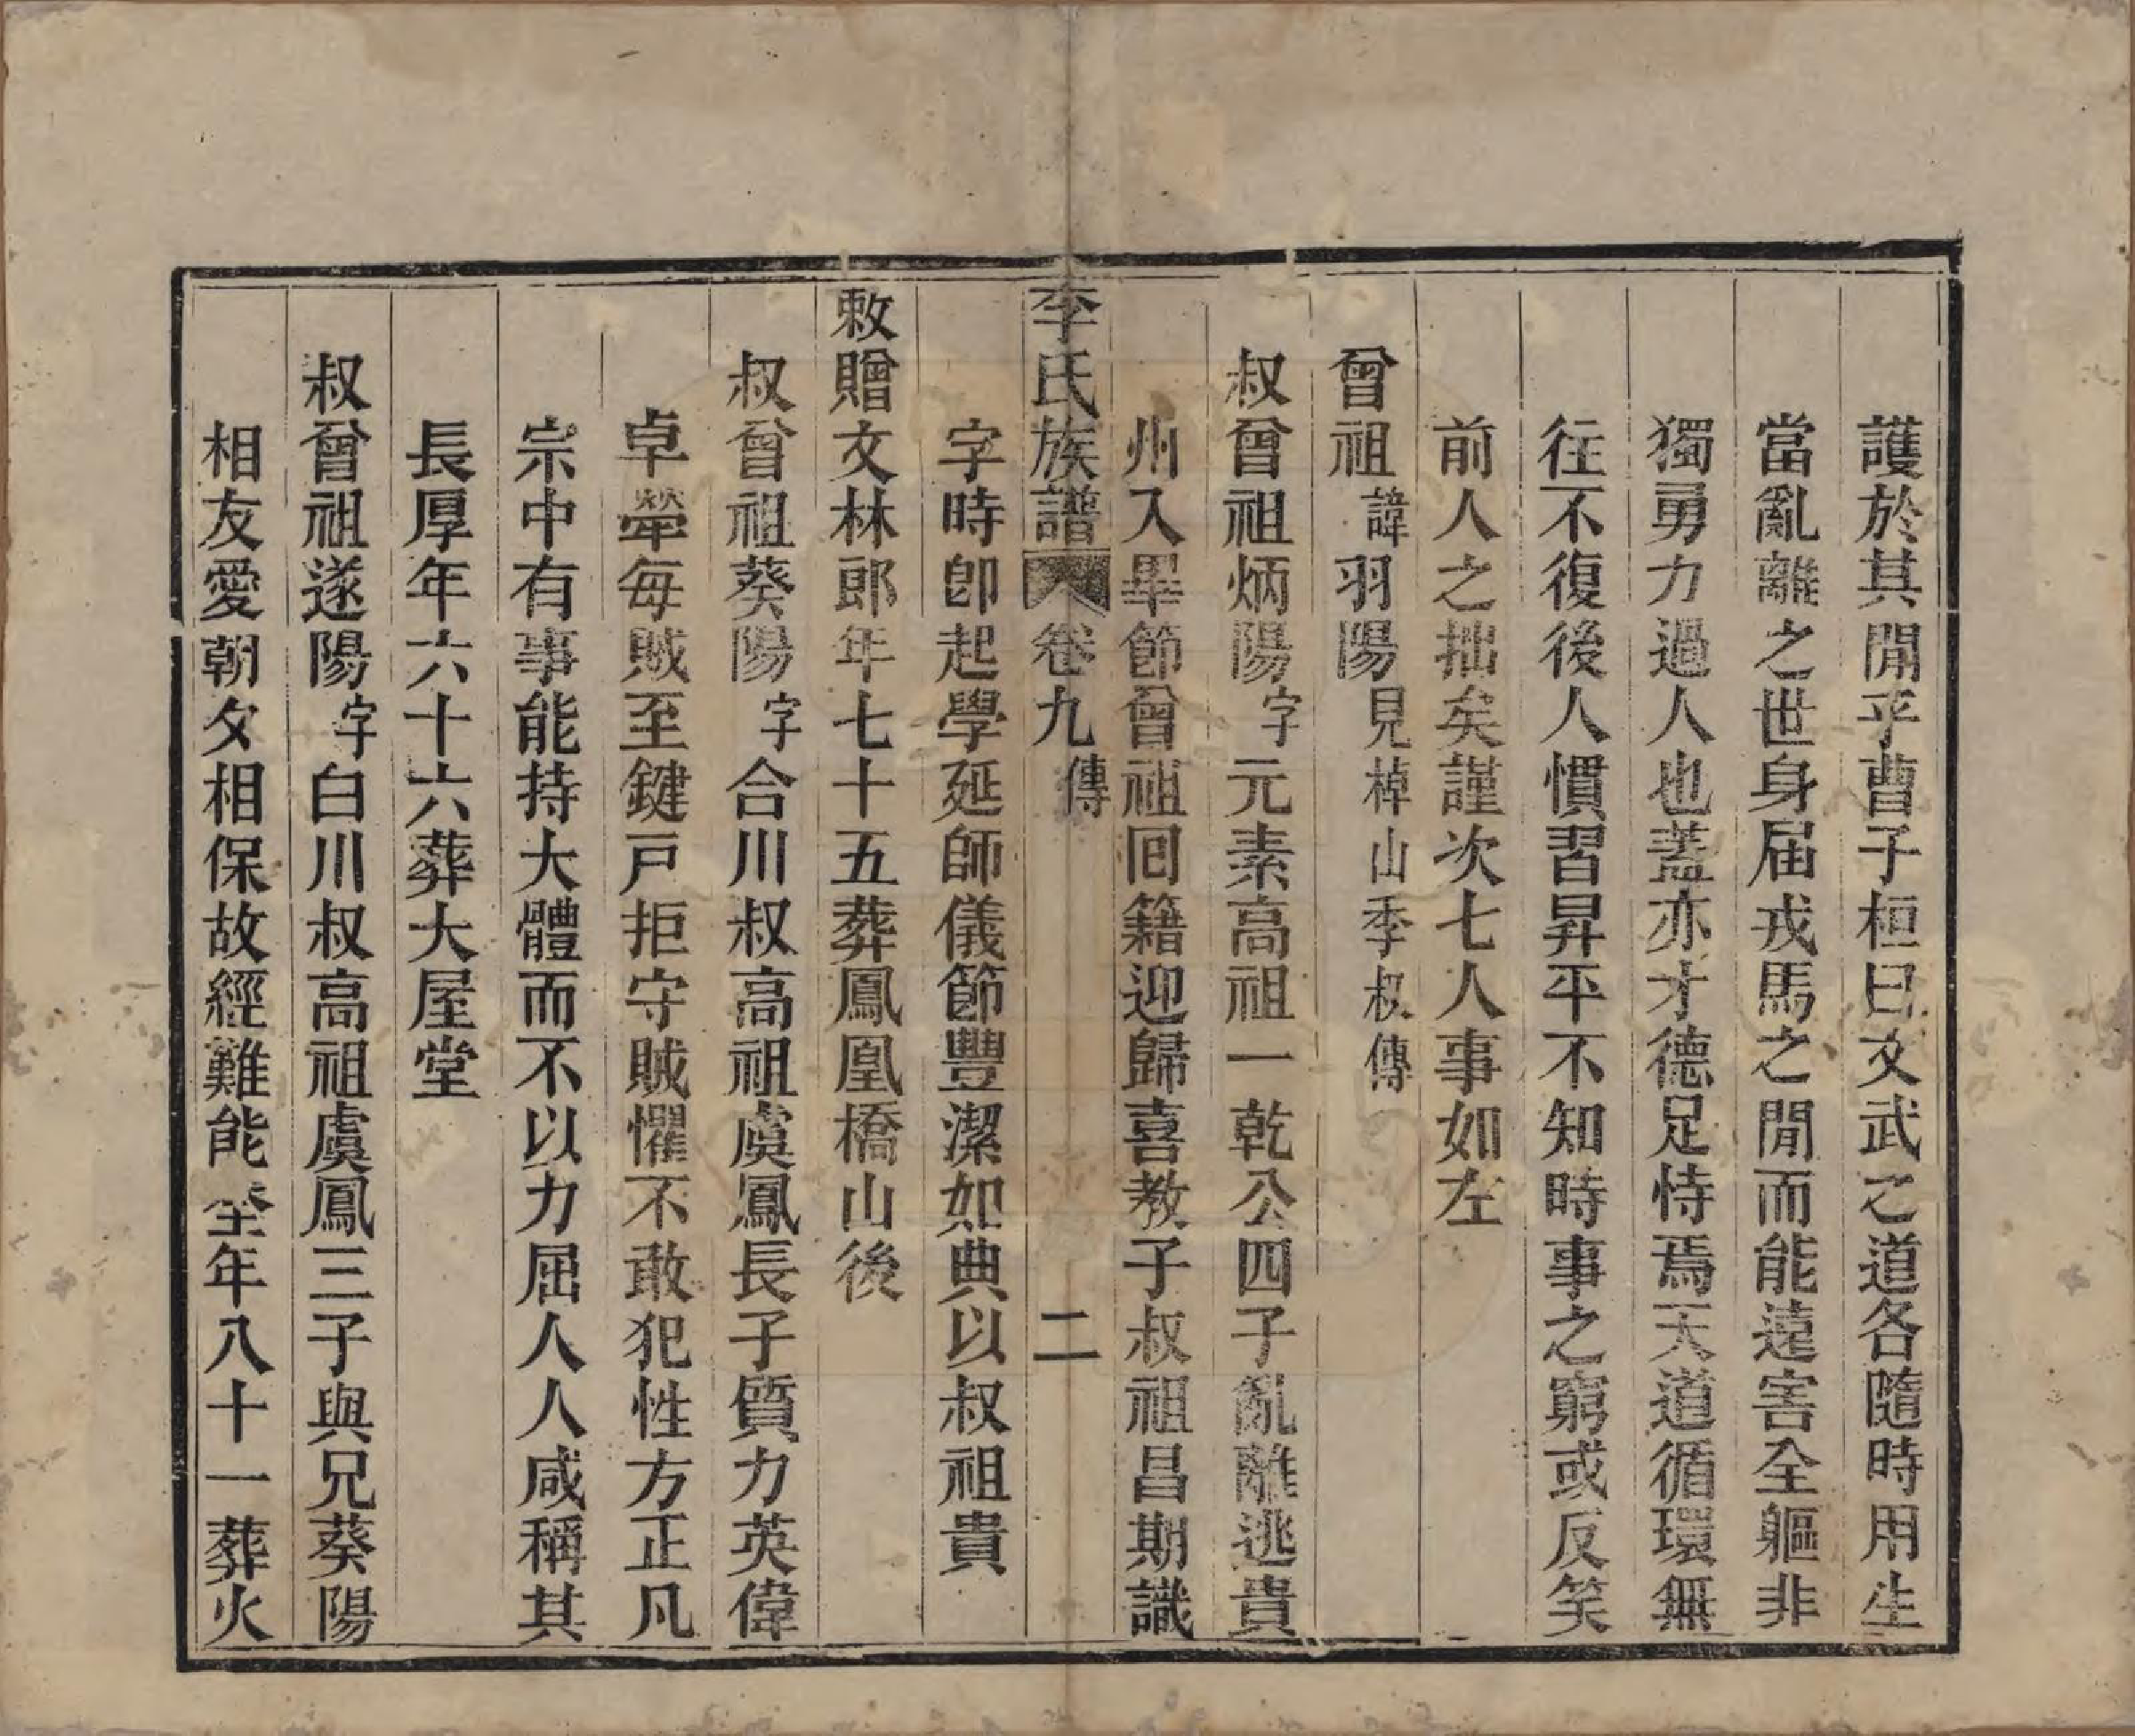 護於其閒乎曹子桓曰文武之道各隨時用生
當亂離之世身届戎馬之閒而能遠害全軀非
獨勇力過人也蓋亦才德足恃焉天道循環無
往不復後人慣習昇平不知時事之窮或反笑
前人之拙矣謹次七人事如左
曾祖諱羽陽見棹山季叔傳
叔曾祖炳陽字元素高祖一乾公四子亂離逃貴
州入畢節曾祖囘籍迎歸喜教子叔祖昌期識
李氏族譜 卷九 傳 二
字時卽起學延師儀節豐潔如典以叔祖貴
敕贈文林郎年七十五葬鳳凰橋山後
叔曾祖葵陽字合川叔高祖虞鳳長子質力英偉
卓犖每賊至鍵戸拒守賊懼不敢犯性方正凡
宗中有事能持大體而不以力屈人人咸稱其
長厚年六十六葬大屋堂
叔曾祖遂陽字白川叔高祖虞鳳三子與兄葵陽
相友愛朝夕相保故經難能全年八十一葬火